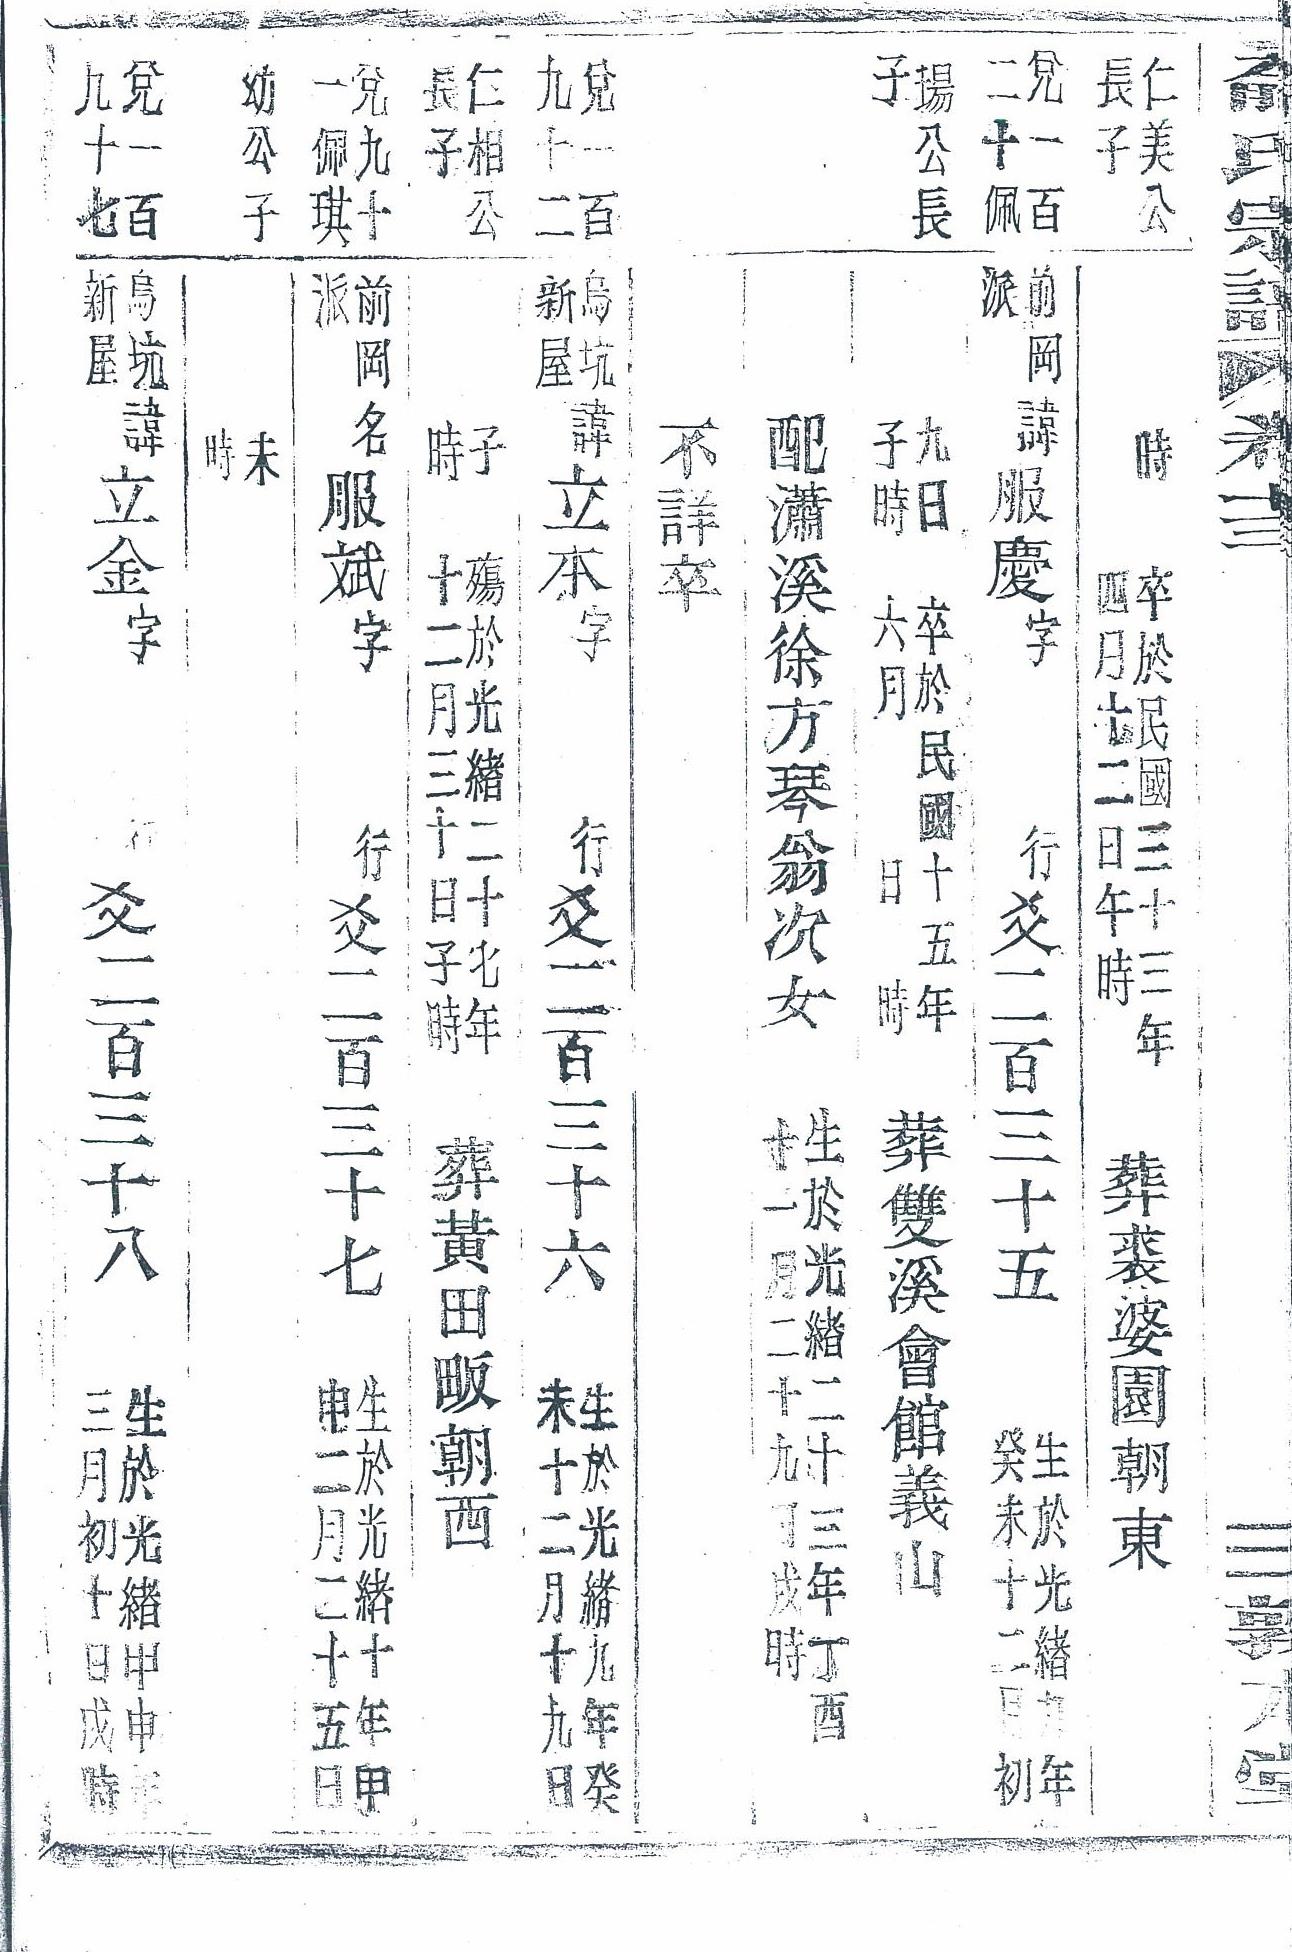 氏宗譜 卷十三
仁美公
長子
時
卒於民國三十三年
四月十二日午時
葬裘婆園朝東
兌一百
二十佩
前岡
派
諱服慶字
行爻二百三十五
生於光緒九年
癸未十二月初
揚公長
子
九日
子時
卒於民國十五年
六月 日 時
葬雙溪會館義山
配瀟溪徐方琴翁次女
生於光緒二十三年丁酉
十一月二十九日戌時
不詳卒
兌一百
九十二
烏坑
新屋
諱立本字
行爻二百三十六
生於光緒九年癸
未十二月十九日
仁相公
長子
子
時
殤於光緒二十 年
十二月三十日子時
葬黃田畈朝西
兌九十
一佩琪
前岡
派
名服斌字
行爻二百三十七
生於光緒十年甲
申二月二十五日
幼公子
未
時
兌一百
九十七
烏坑
新屋
諱立金字
行爻二百三十八
生於光緒甲申年
三月初十日戌時